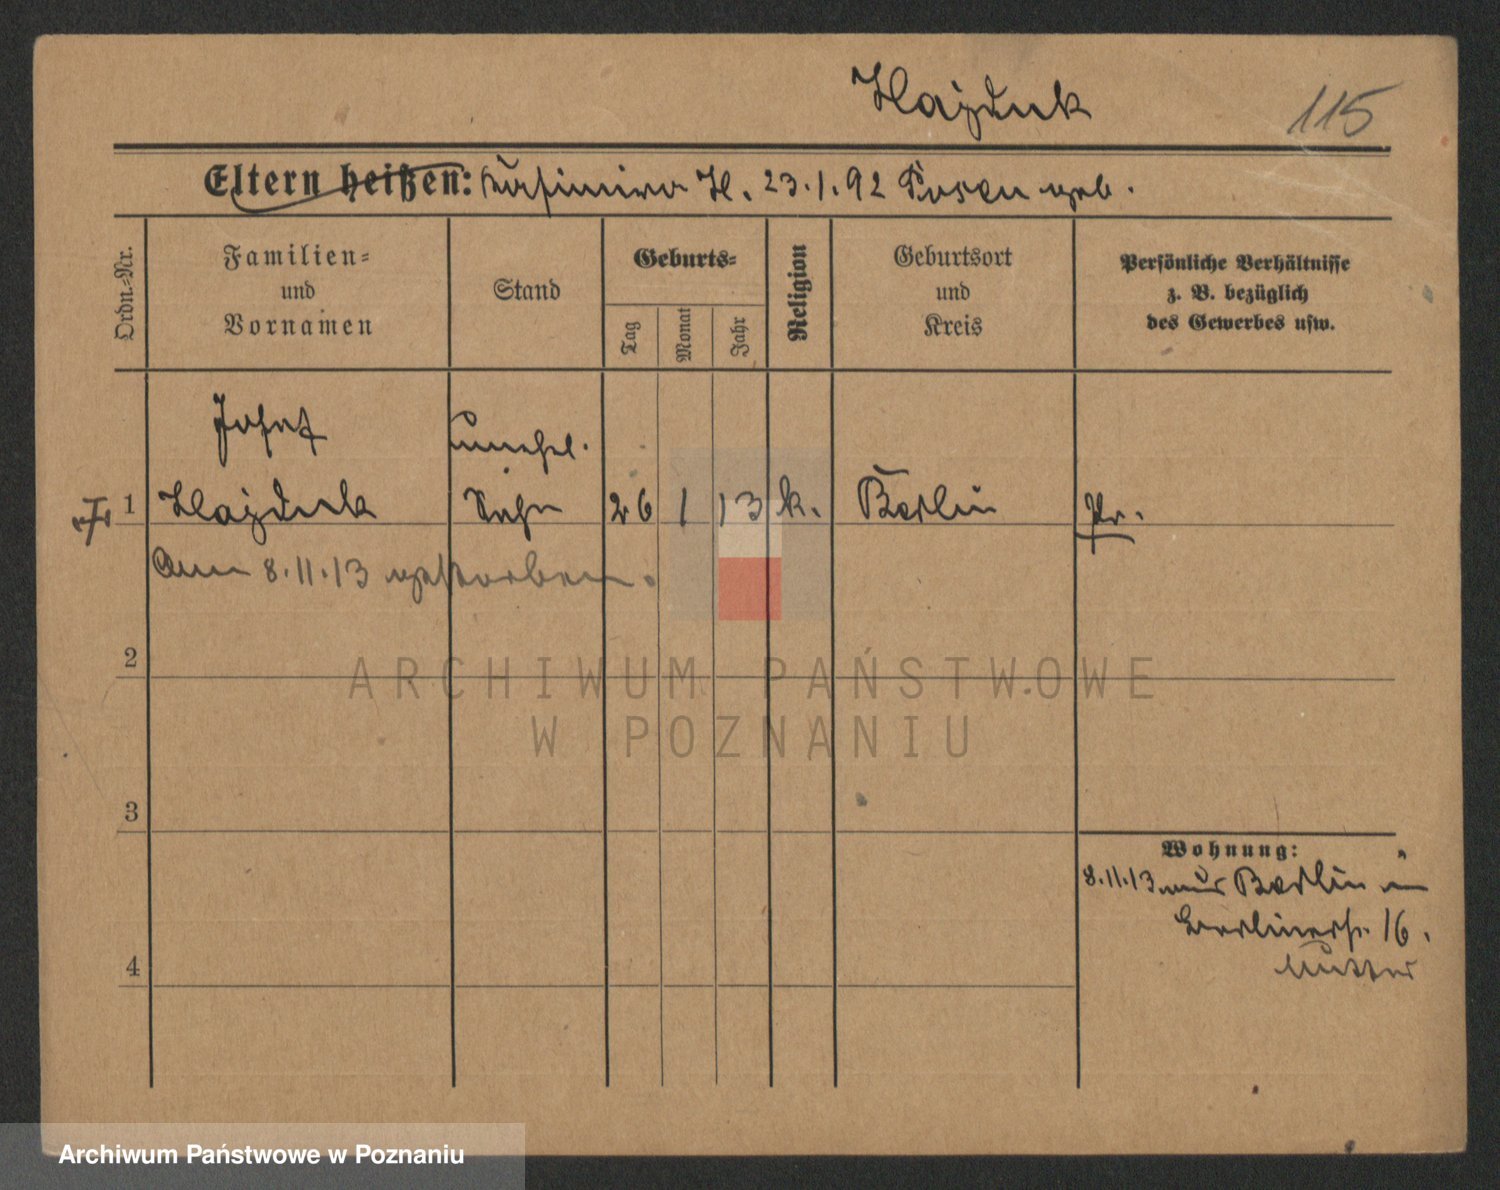 Hajduk
115
Eltern heißen: Kasimira H. 23.1.92 Posen geb.
Ordn.=Nr.
Familien=
und
Vornamen
Stand
Geburts=
Tag
Monat
Jahr
Religion
Geburtsort
und
Kreis
Persönliche Verhältnisse
z. B. bezüglich
des Gewerbes usw.
Josef unehel.
1 Hajduk Sohn 26 1 13 k. Berlin Pr.
Am 8.11.13 gestorben.
2
ARCHIWUM PAŃSTWOWE
W POZNANIU
3
Wohnung:
8.11.13 aus Berlin in
Berlinerstr. 16.
Mutter
4
Archiwum Państwowe w Poznaniu